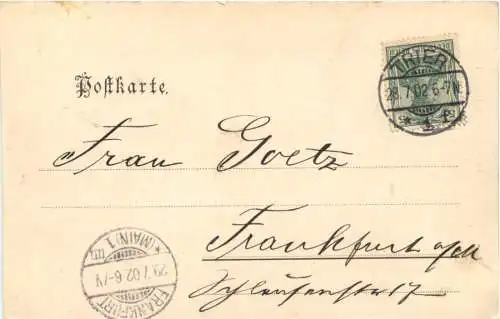 Postkarte.
TRIER
28.7.02.6-7N
* 1 f
Frau Goetz
Frankfurt a/M
Schleusenstr 17
FRANKFURT
29.7.02.6-7V
* (MAIN) 1 m